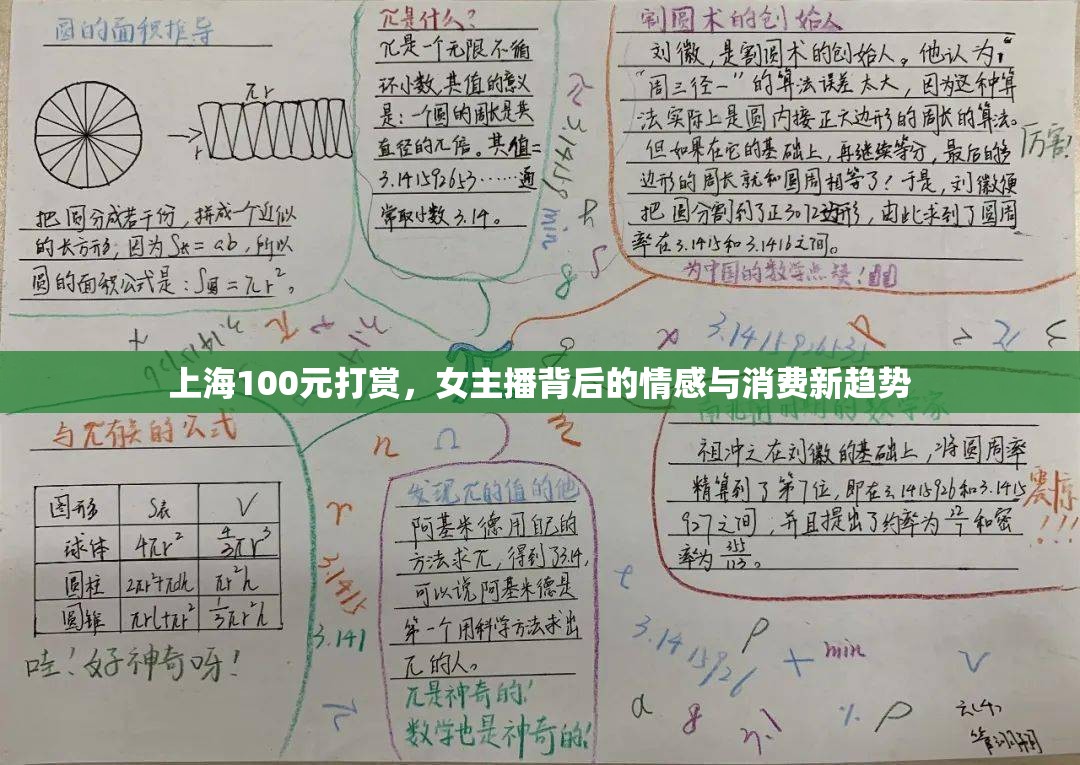 圆的面积推导
πr
r
把圆分成若干份，拼成一个近似
的长方形；因为S长=ab，所以
圆的面积公式是：S圆=πr²。
π是什么？
π是一个无限不循
环小数，其值的意义
是：一个圆的周长是其
直径的π倍。其值=
3.141592653……通
常取小数3.14。
π 3.14159 min
割圆术的创始人
刘徽，是割圆术的创始人。他认为，
“周三径一”的算法误差太大，因为这种算
法实际上是圆内接正六边形的周长的算法。
但如果在它的基础上，再继续等分，最后的多
边形的周长就和圆周相等了！于是，刘徽便
把圆分割到了正3072边形，由此求到了圆周
率在3.1415和3.1416之间。
厉害！
为中国的数学点赞！
3.1415926535
上海100元打赏，女主播背后的情感与消费新趋势
与π有关的公式
图形 S表 V
球体 4πr² 4/3πr³
圆柱 2πr²+πdh πr²h
圆锥 πrl+πr² 1/3πr²h
哇！好神奇呀！
n Ω
r
3.1415
3.141
π
发现π的值的他
阿基米德用自己的
方法求π，得到了3.14，
可以说阿基米德是
第一个用科学方法求出
π的人。
π是神奇的！
数学也是神奇的！
祖冲之在刘徽的基础上，将圆周率
精算到了第7位，即在3.1415926和3.1415
927之间，并且提出了约率为22/7和密
率为355/113。
震惊
!!!
t
3.1415926
ρ
+
min
V
a
8
%
ρ